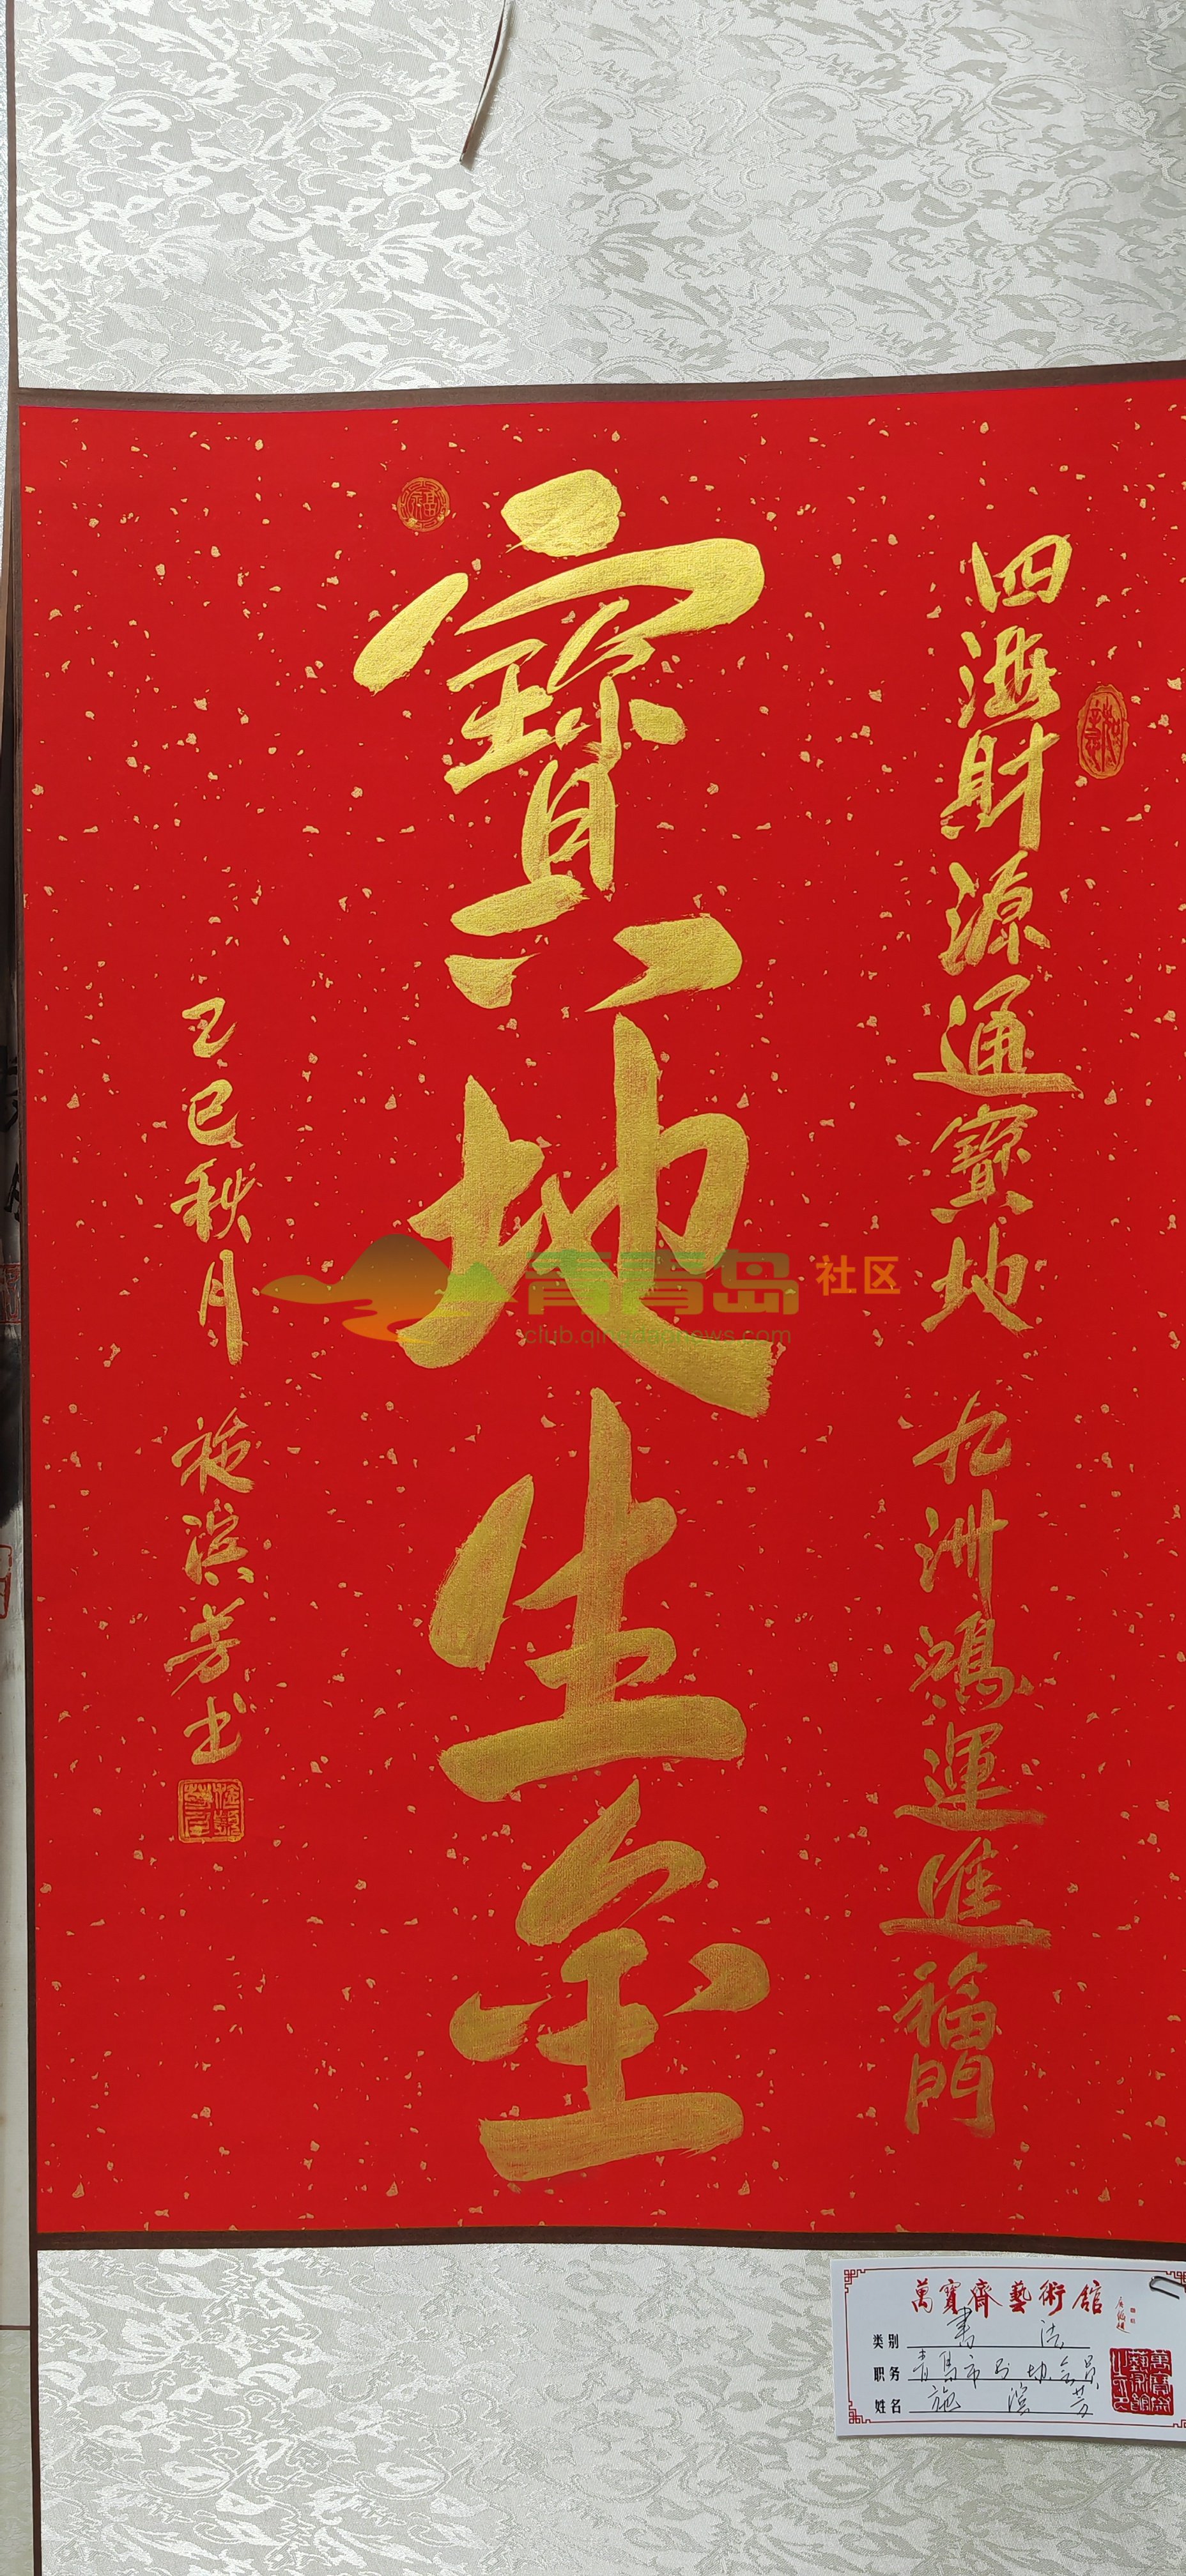 四海財源通寶地 九洲鴻運進福門
寶地生金
乙巳秋月 施滨芳书
福
青青岛社区
club.qingdaonews.com
萬寶齋藝術舘
类别 書法
职务 青岛市书协会员
姓名 施滨芳